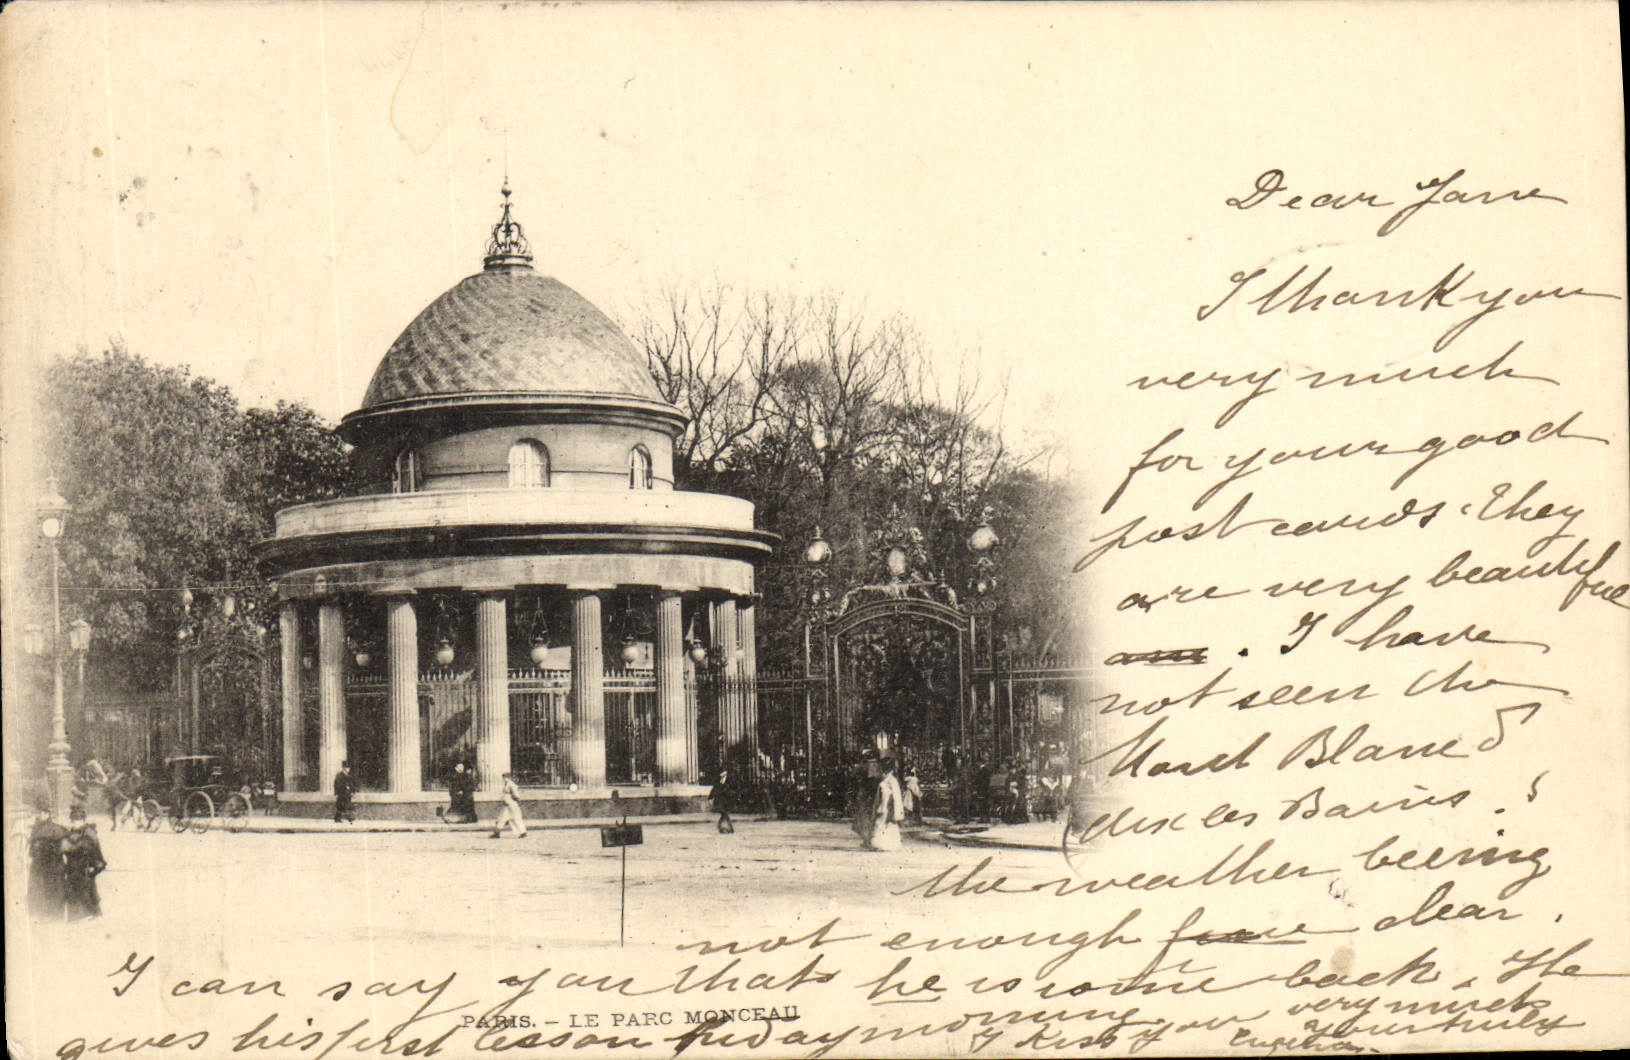 Dear Jane
I thank you
very much
for your good
post cards. They
are very beautiful
. I have
not seen the
Mont Blanc d
les Bains.
the weather beeing
not enough clear.
I can say you that he is come back. He
gives his first lesson friday morning
I Kiss you very much
Yours truly
PARIS. – LE PARC MONCEAU